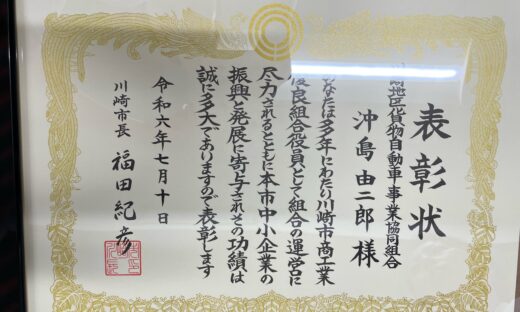 表彰状
川崎地区貨物自動車事業協同組合
沖島由二郎様
あなたは多年にわたり川崎市商工業
優良組合役員として組合の運営に
尽力されるとともに本市中小企業の
振興と発展に寄与されその功績は
誠に多大でありますので表彰します
令和六年七月十日
川崎市長 福田紀彦